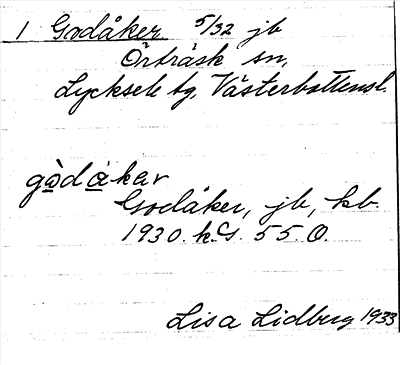 1 Godåker 5/32 jb
Örträsk sn.
Lycksele tg, Västerbottensl.
gòdåkar
Godåker, jb, kb.
1930. k.G. 55. O.
Lisa Lidberg 1933